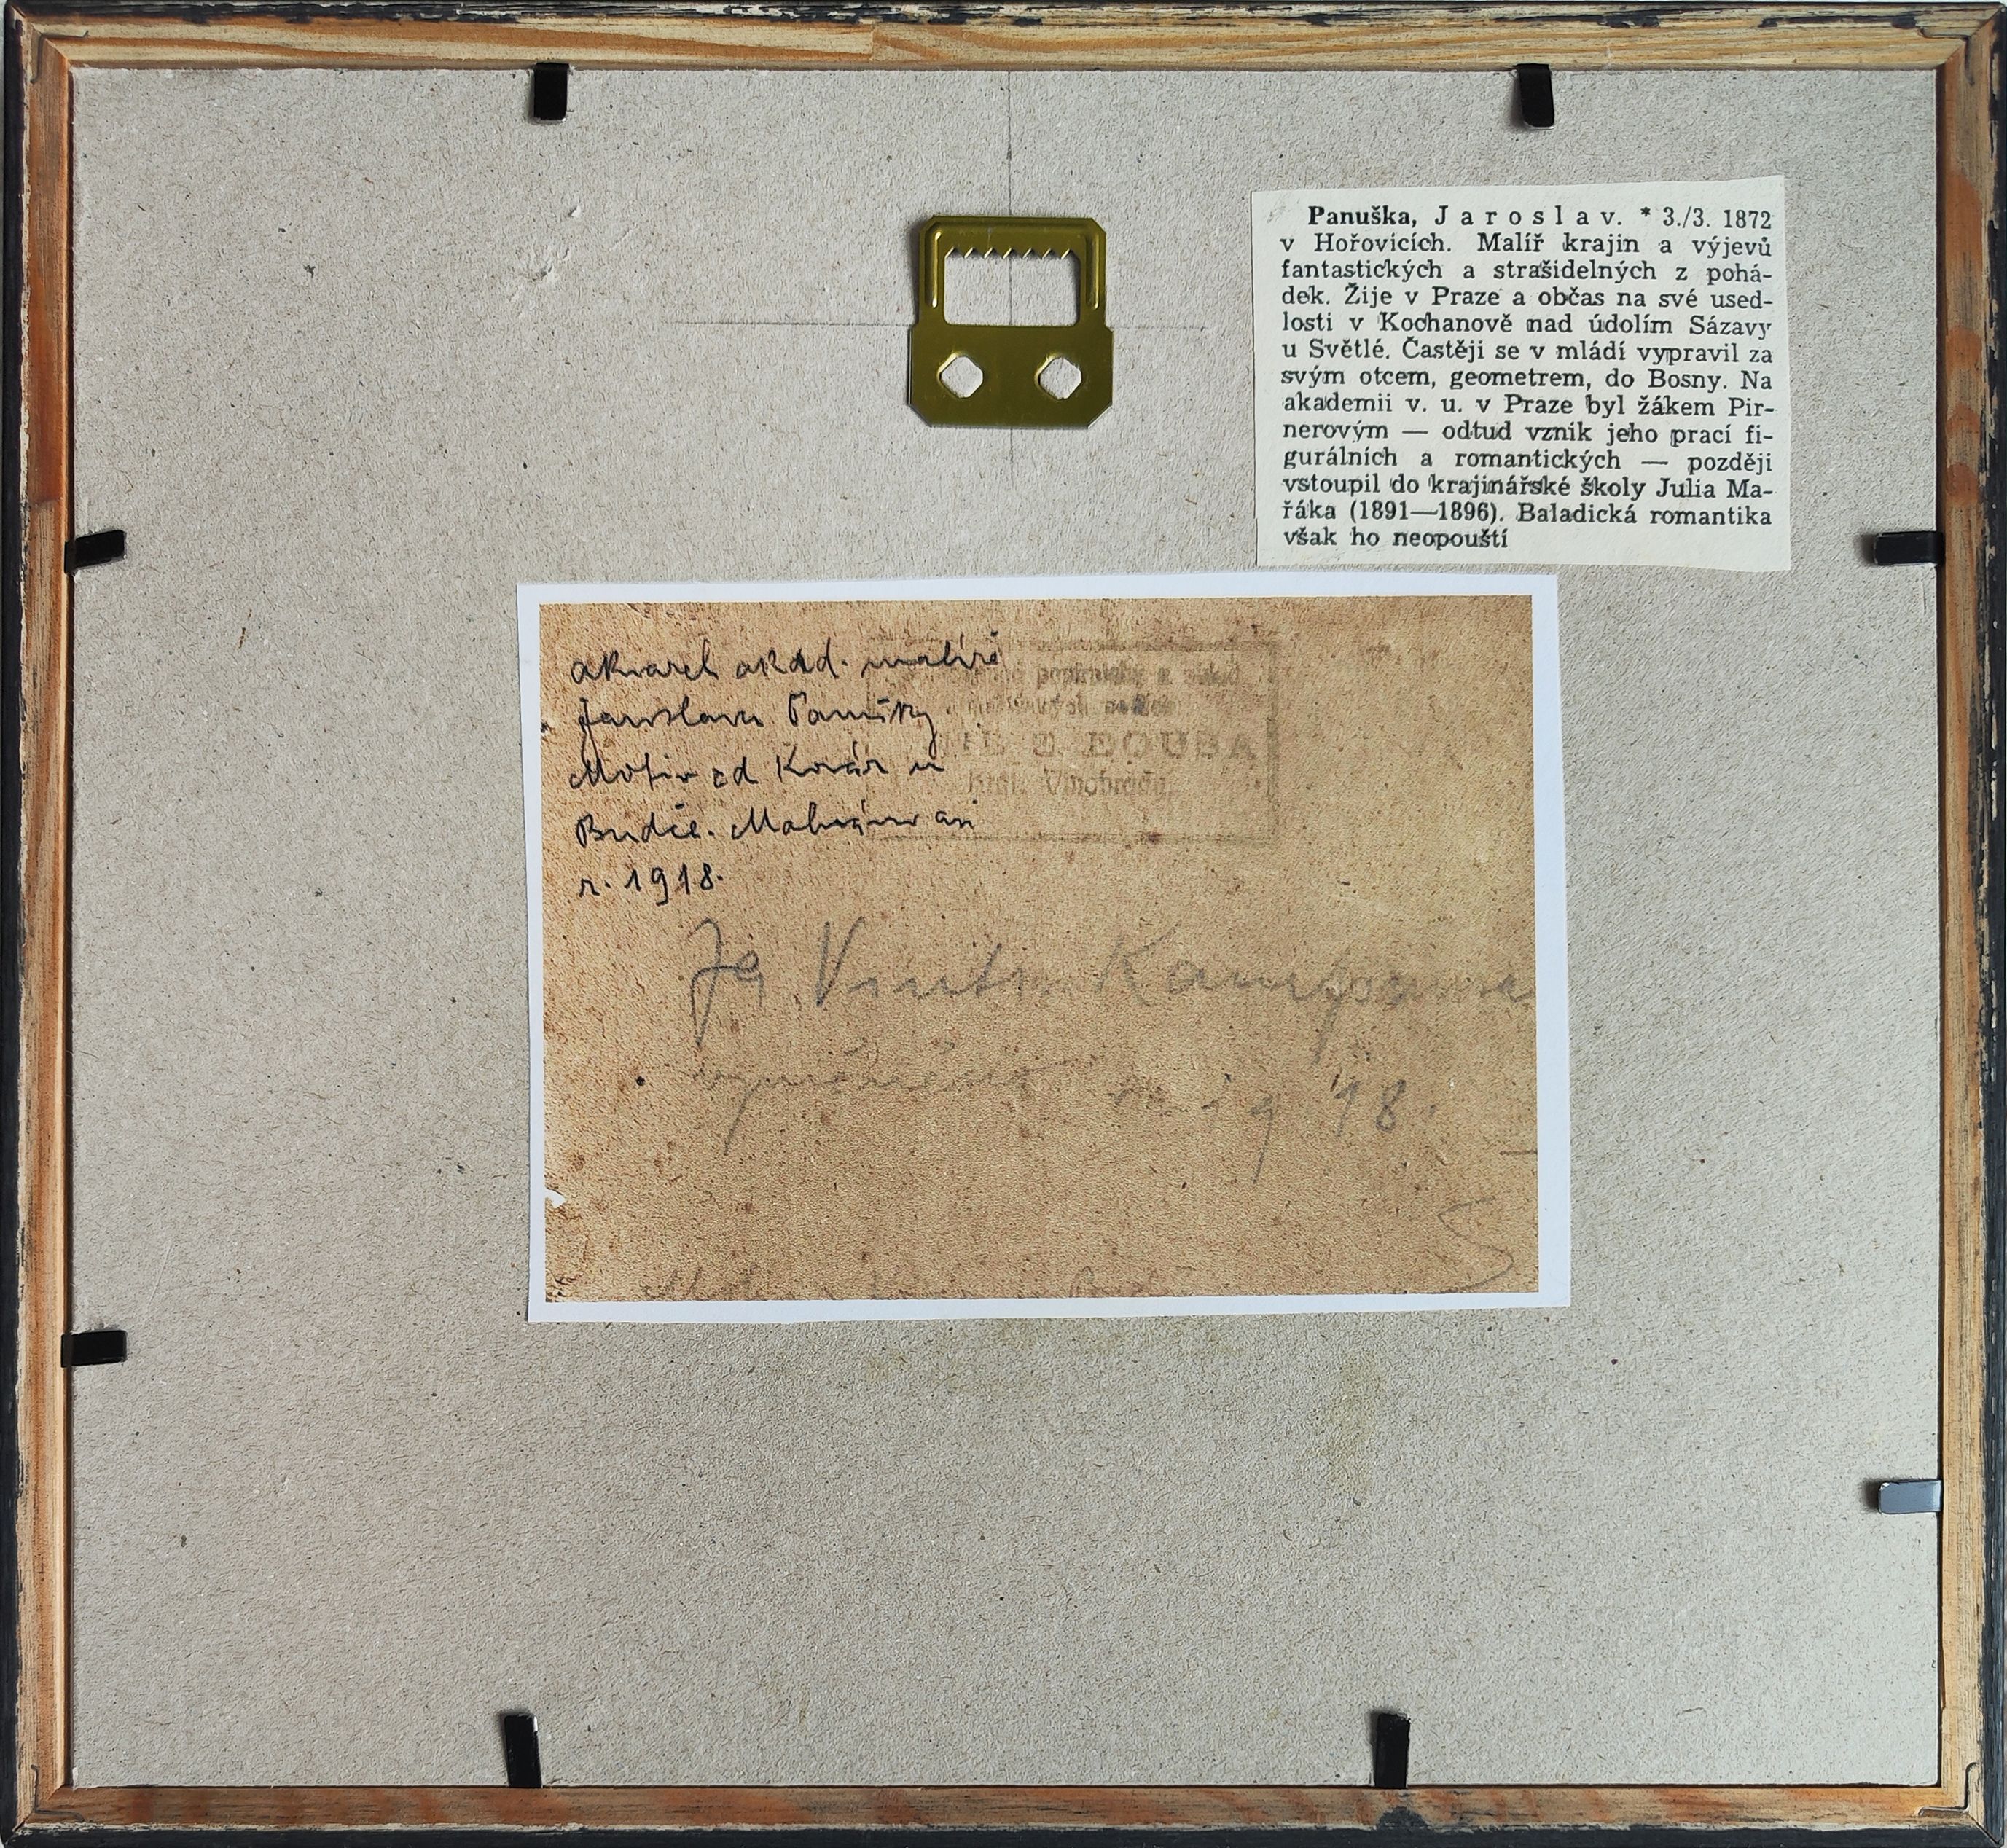 Panuška, Jaroslav. * 3./3. 1872
v Hořovicích. Malíř krajin a výjevů
fantastických a strašidelných z pohá-
dek. Žije v Praze a občas na své used-
losti v Kochanově nad údolím Sázavy
u Světlé. Častěji se v mládí vypravil za
svým otcem, geometrem, do Bosny. Na
akademii v. u. v Praze byl žákem Pir-
nerovým — odtud vznik jeho prací fi-
gurálních a romantických — později
vstoupil do krajinářské školy Julia Ma-
řáka (1891—1896). Baladická romantika
však ho neopouští
akvarel akad. malíře
Jaroslava Panušky
Motiv od Kovár u
Budče. Malováno asi
r. 1918.
BOUBA
Král. Vinohrady